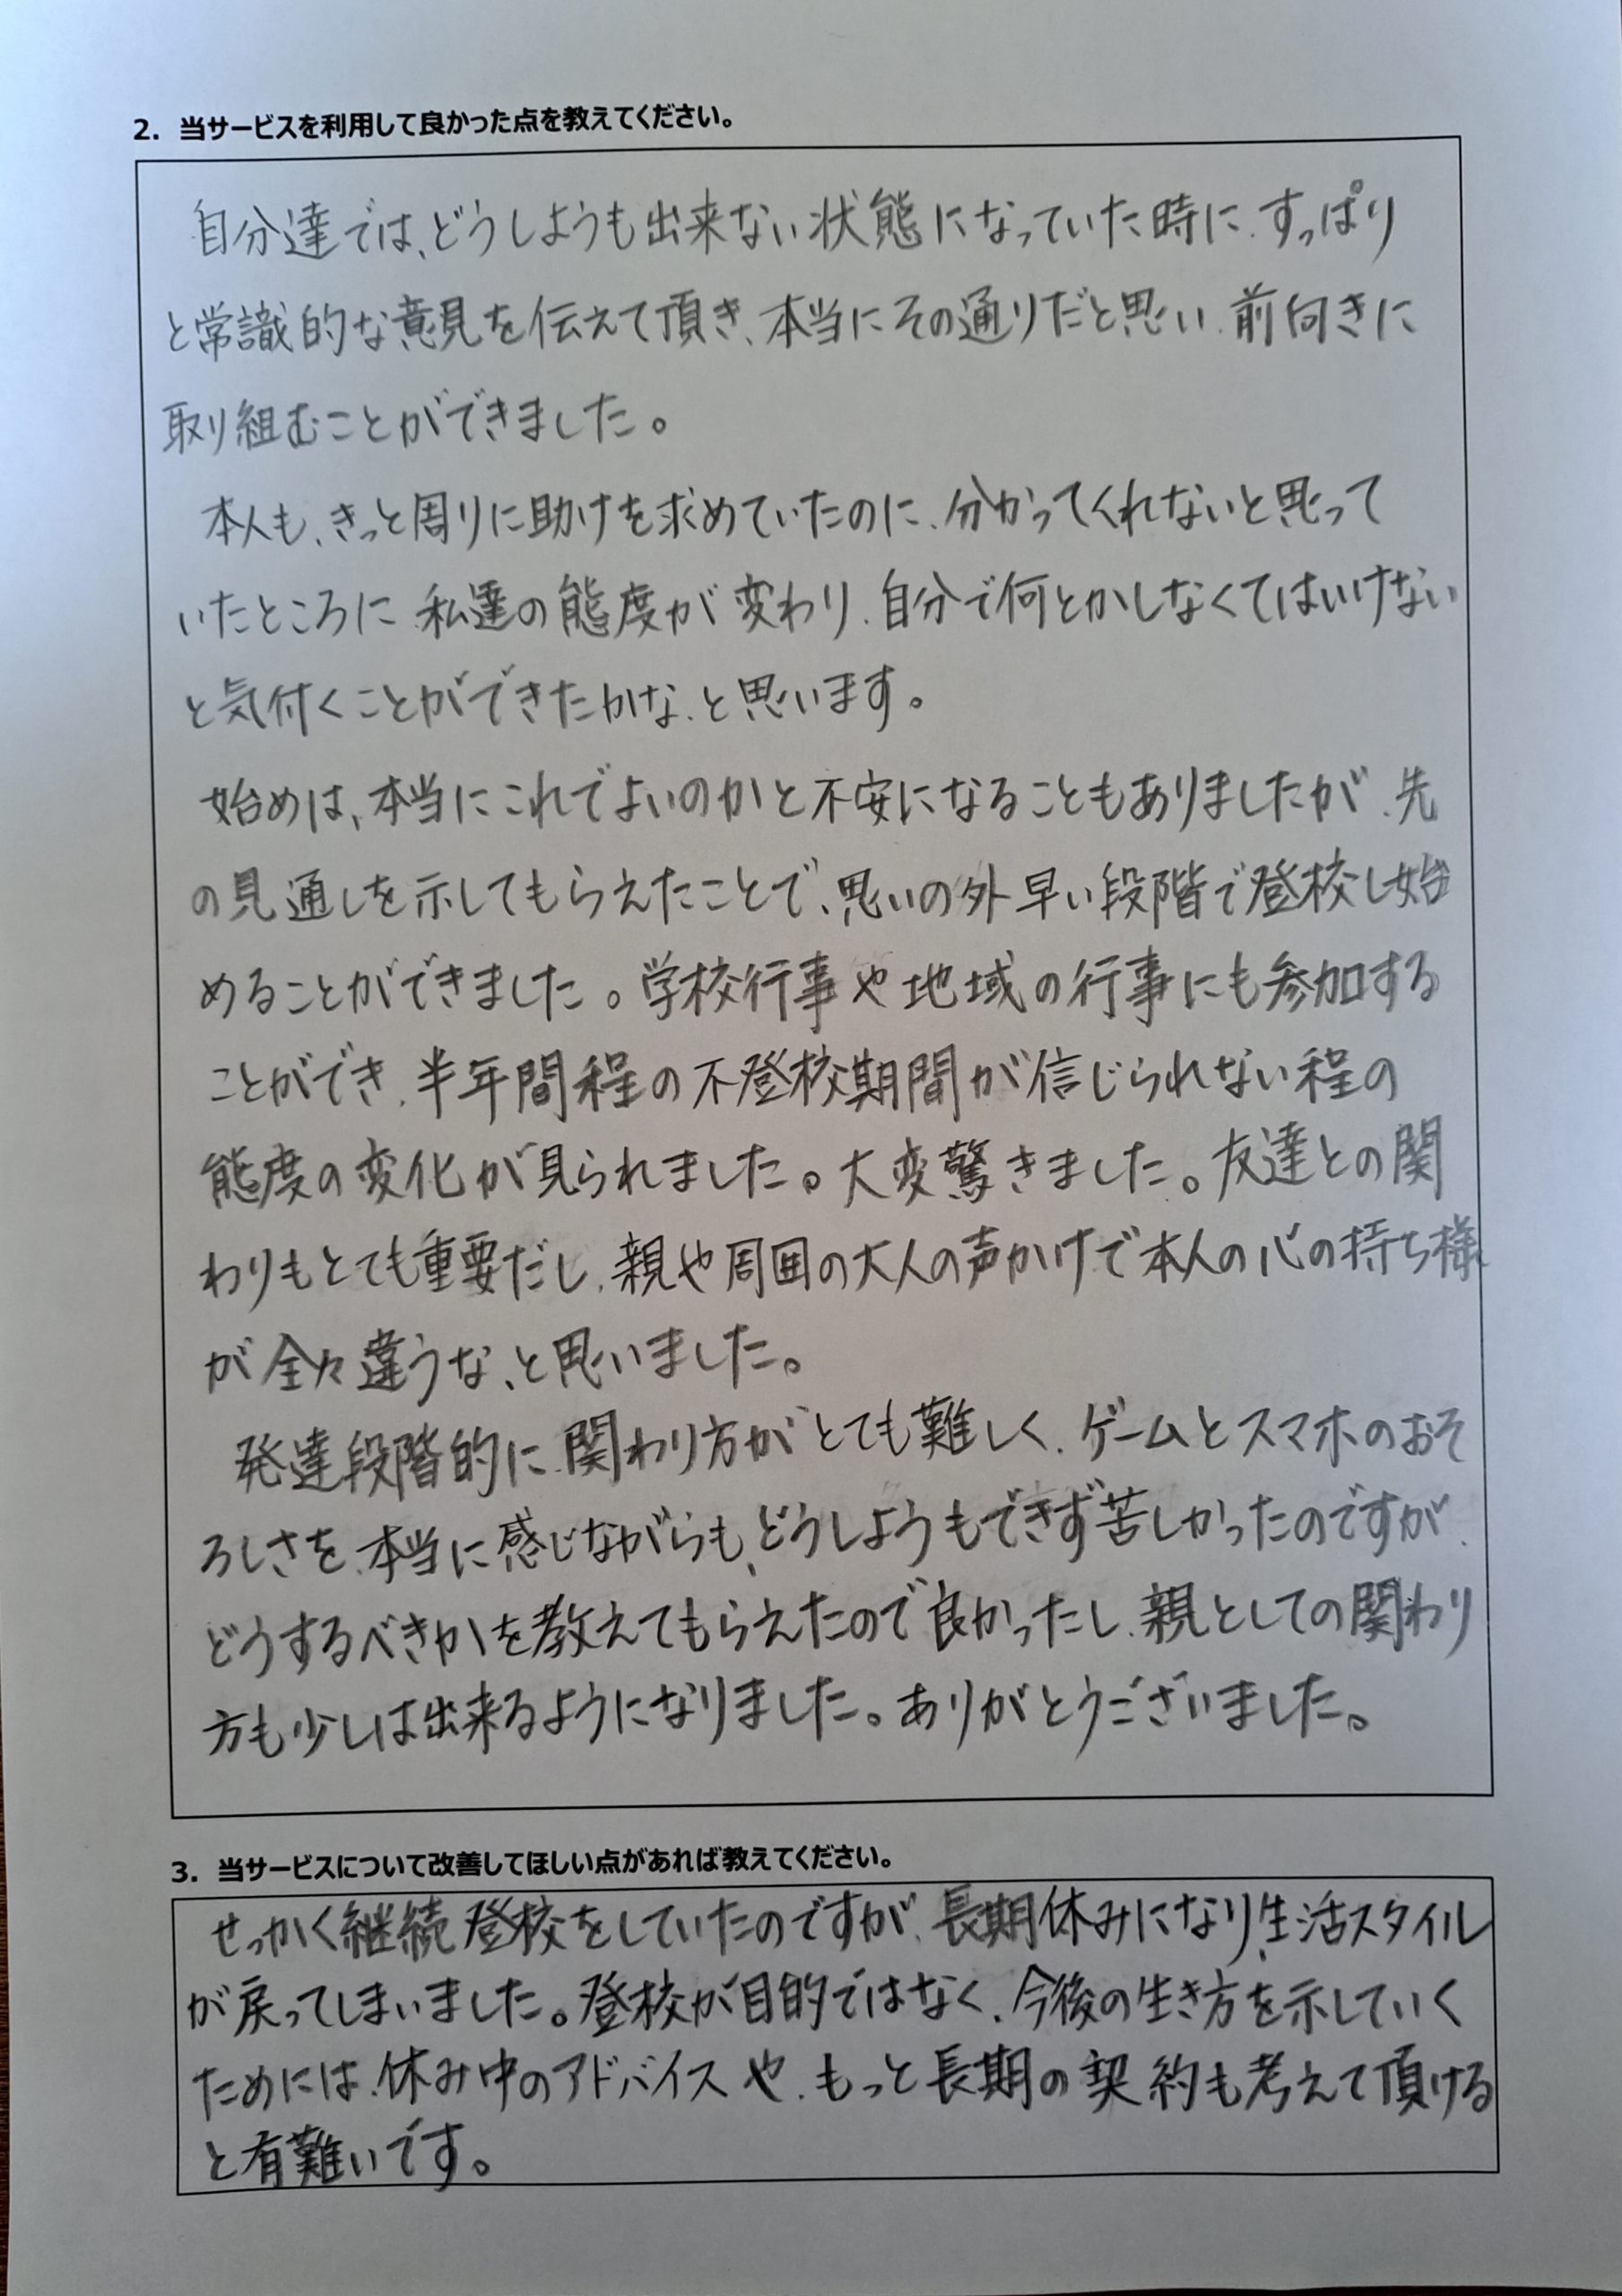 2. 当サービスを利用して良かった点を教えてください。
自分達では、どうしようも出来ない状態になっていた時に、すっぱり
と常識的な意見を伝えて頂き、本当にその通りだと思い、前向きに
取り組むことができました。
本人も、きっと周りに助けを求めていたのに、分かってくれないと思って
いたところに、私達の態度が変わり、自分で何とかしなくてはいけない
と気付くことができたかな、と思います。
始めは、本当にこれでよいのかと不安になることもありましたが、先
の見通しを示してもらえたことで、思いの外早い段階で登校し始
めることができました。学校行事や地域の行事にも参加する
ことができ、半年間程の不登校期間が信じられない程の
態度の変化が見られました。大変驚きました。友達との関
わりもとても重要だし、親や周囲の大人の声かけで本人の心の持ち様
が全々違うな、と思いました。
発達段階的に、関わり方がとても難しく、ゲームとスマホのおそ
ろしさを、本当に感じながらも、どうしようもできず苦しかったのですが、
どうするべきかを教えてもらえたので良かったし、親としての関わり
方も少しは出来るようになりました。ありがとうございました。
3. 当サービスについて改善してほしい点があれば教えてください。
せっかく継続登校をしていたのですが、長期休みになり、生活スタイル
が戻ってしまいました。登校が目的ではなく、今後の生き方を示していく
ためには、休み中のアドバイスや、もっと長期の契約も考えて頂ける
と有難いです。